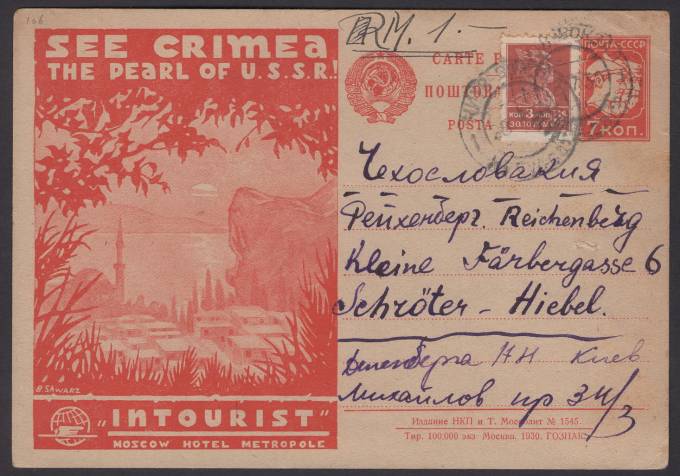 106
SEE CRIMEA
THE PEARL OF U.S.S.R.!
B. SAWARZ
„INTOURIST"
MOSCOW HOTEL METROPOLE
RM. 1.-
CARTE
ПОШТОВА
POSTA
КОП. 3 КОП.
ПОЧТА-СССР
7 КОП.
Чехословакия
Рейхенберг. Reichenberg
Kleine Färbergasse 6
Schröter - Hiebel.
НН Киев
Михайлов пр 34/3
Издание НКП и Т. Мособлит № 1545.
Тир. 100.000 экз Москва. 1930. ГОЗНАК